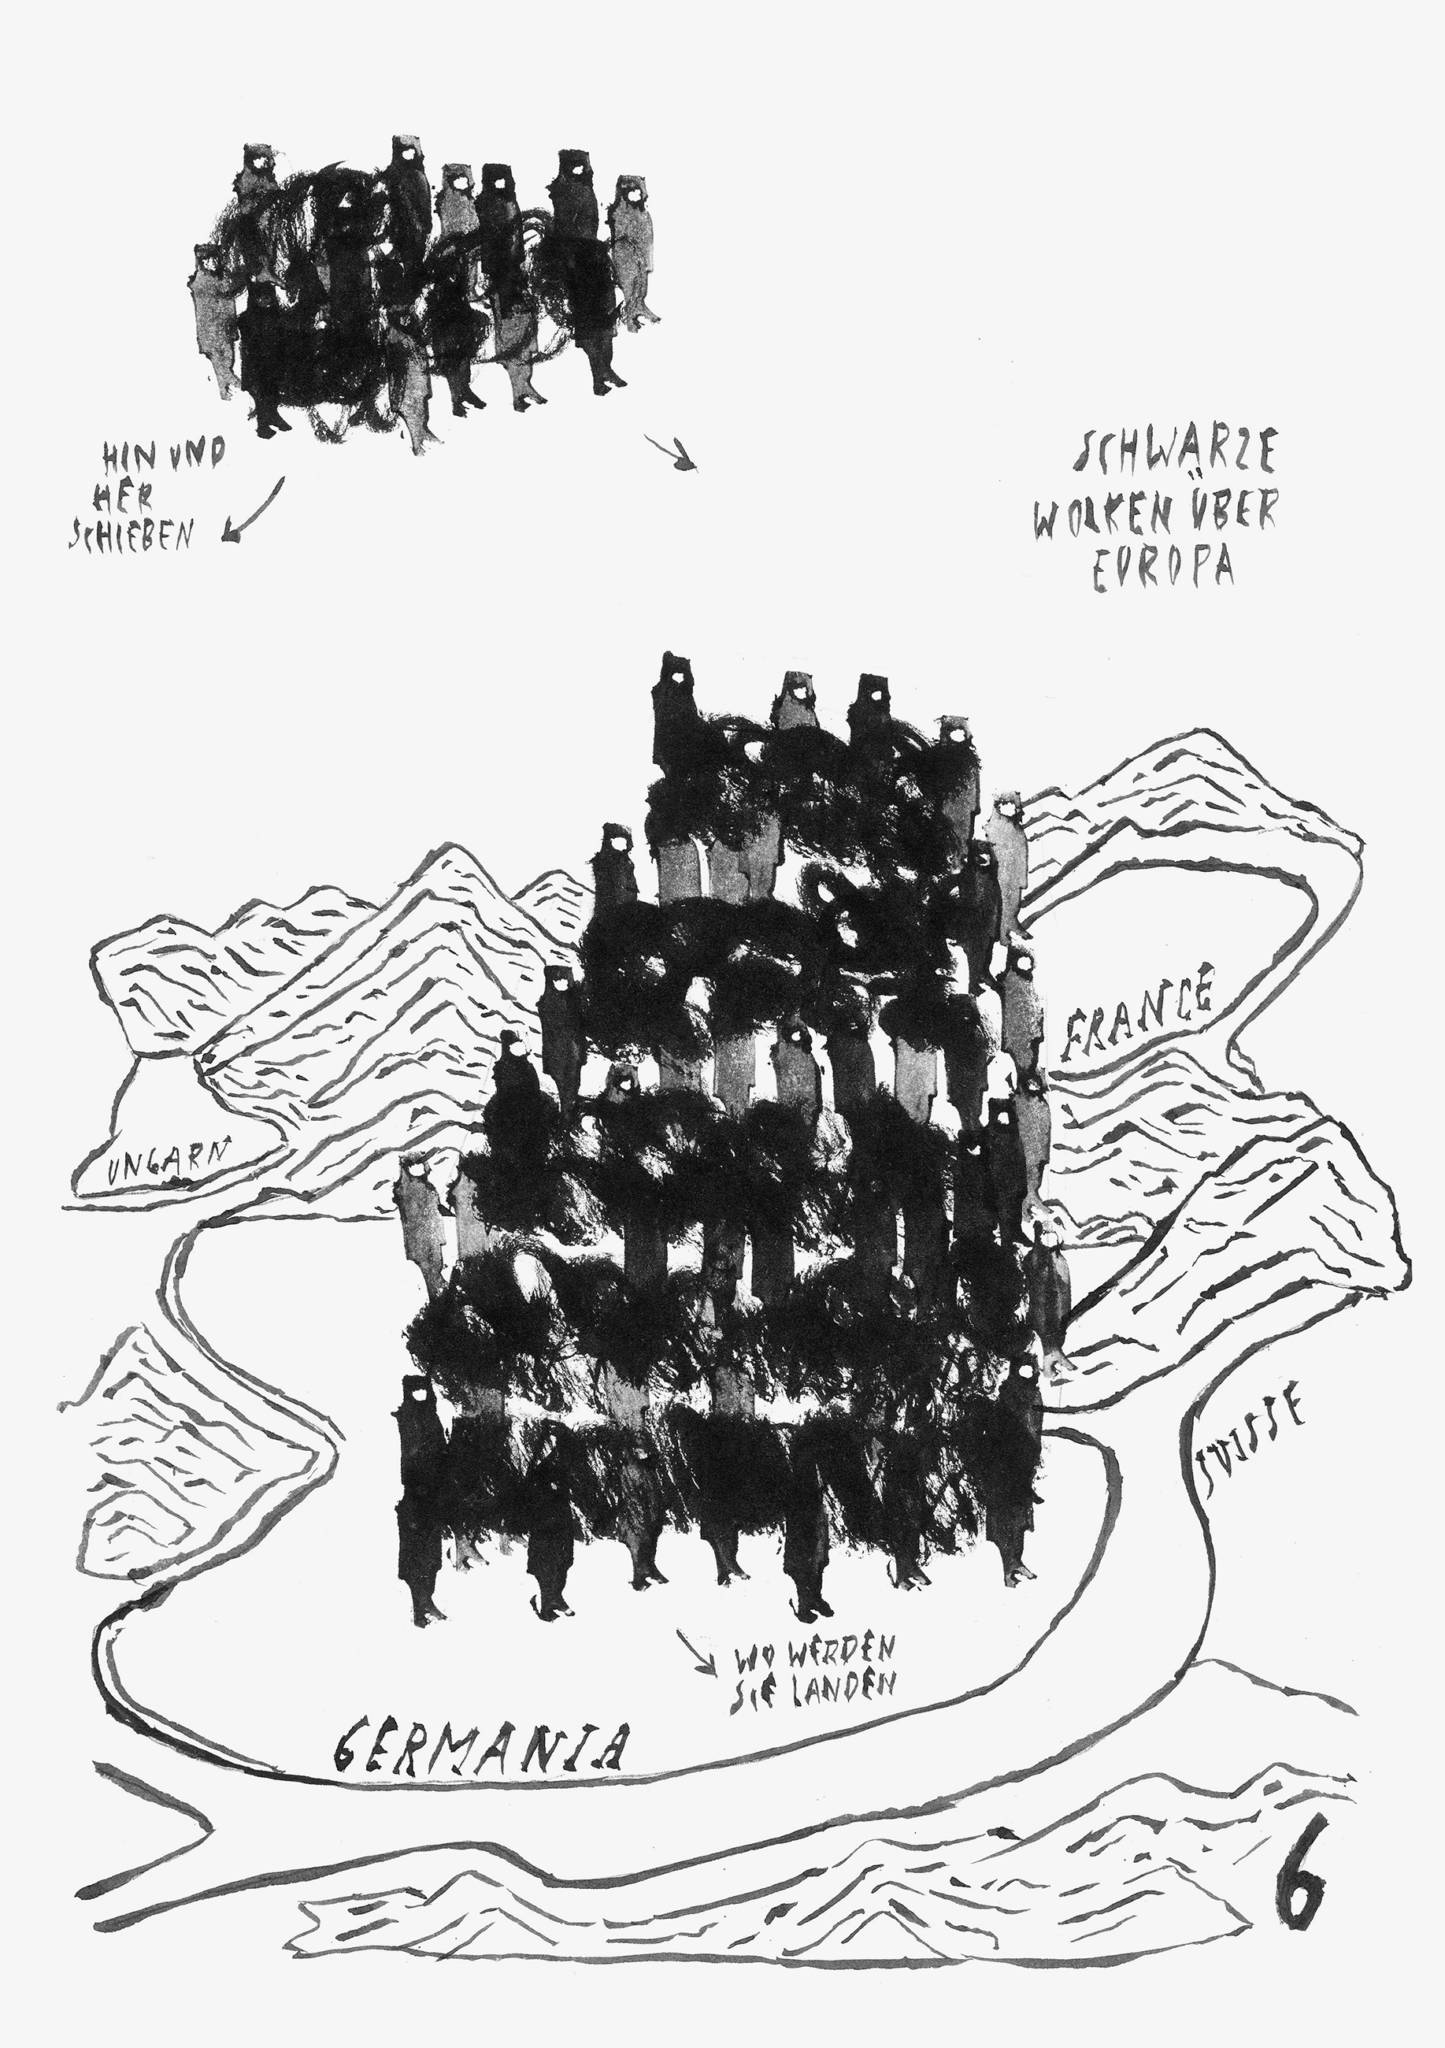 HIN UND
HER
SCHIEBEN
SCHWARZE
WOLKEN ÜBER
EUROPA
FRANCE
UNGARN
SUISSE
WO WERDEN
SIE LANDEN
GERMANIA
6